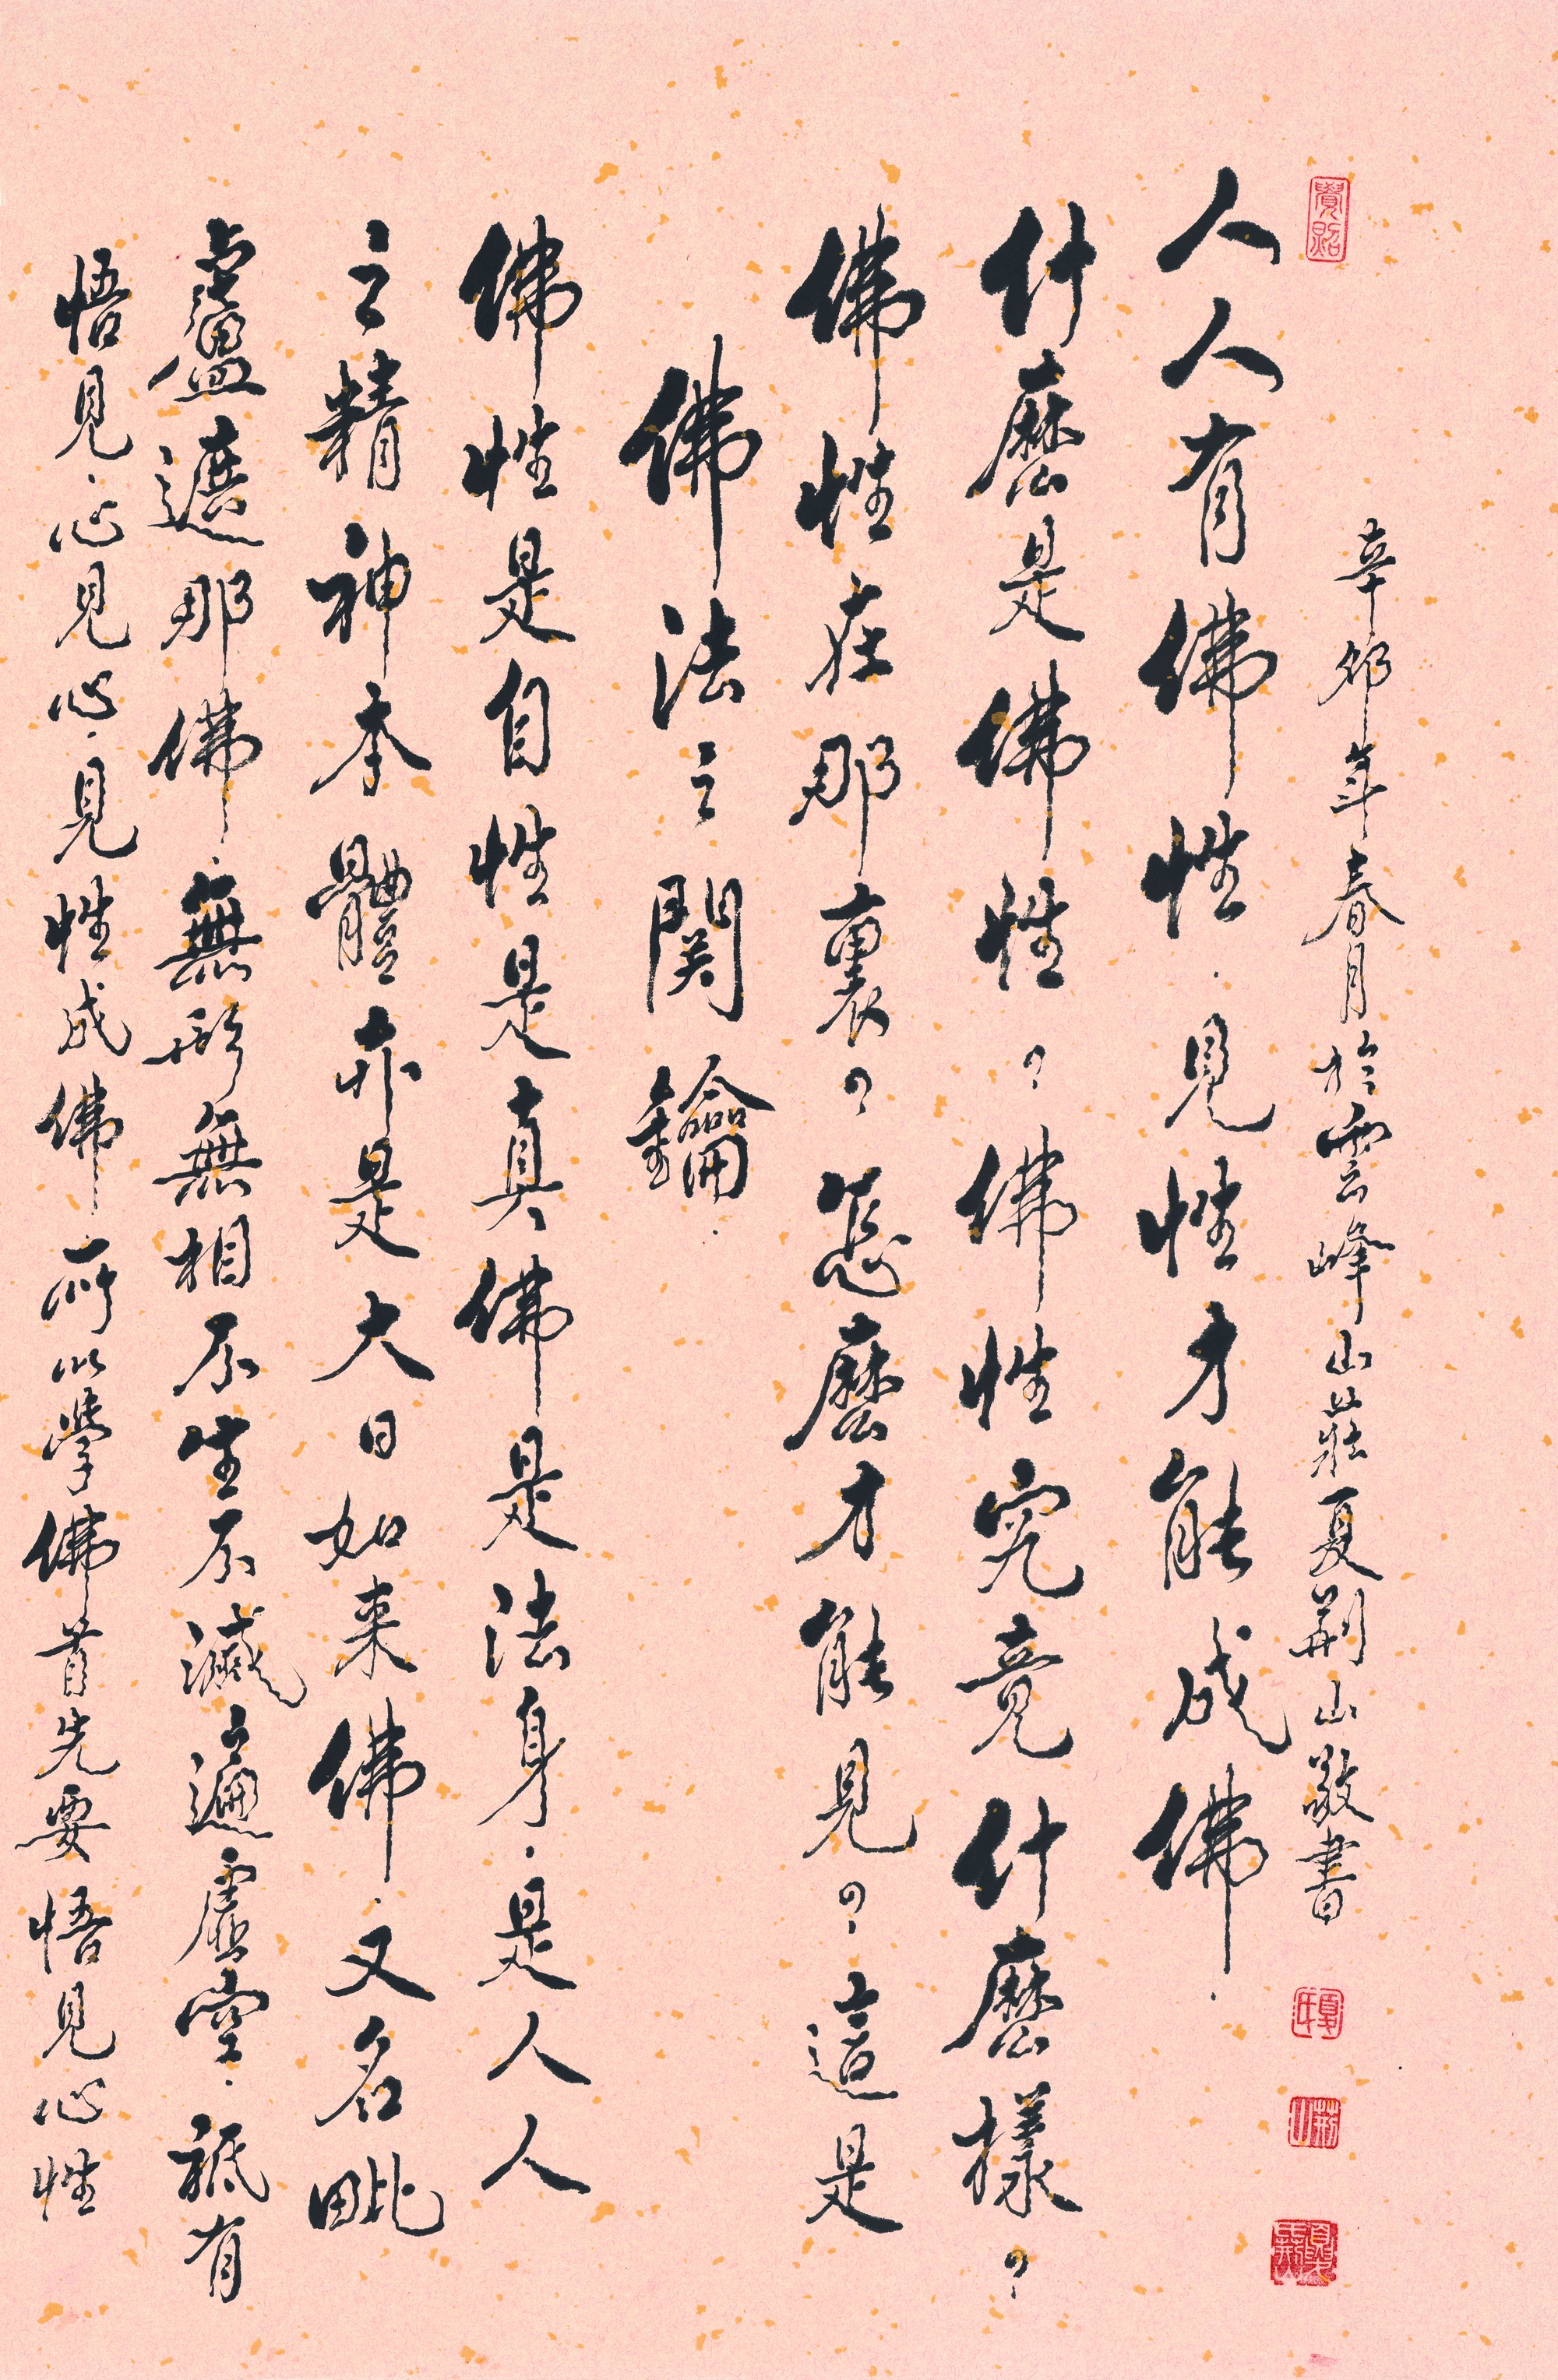 辛卯年春月於雲峰山莊夏荊山敬書
人人有佛性.見性才能成佛.
什麼是佛性?佛性究竟什麼樣?
佛性在那裏?怎麼才能見?這是
佛法之関鑰.
佛性是自性是真佛是法身.是人人
之精神本體亦是大日如来佛.又名毗
盧遮那佛.無形無相不生不滅遍虛空.祇有
悟見.心見見心.見性成佛.所以學佛首先要悟見心性
荊山
夏荊山